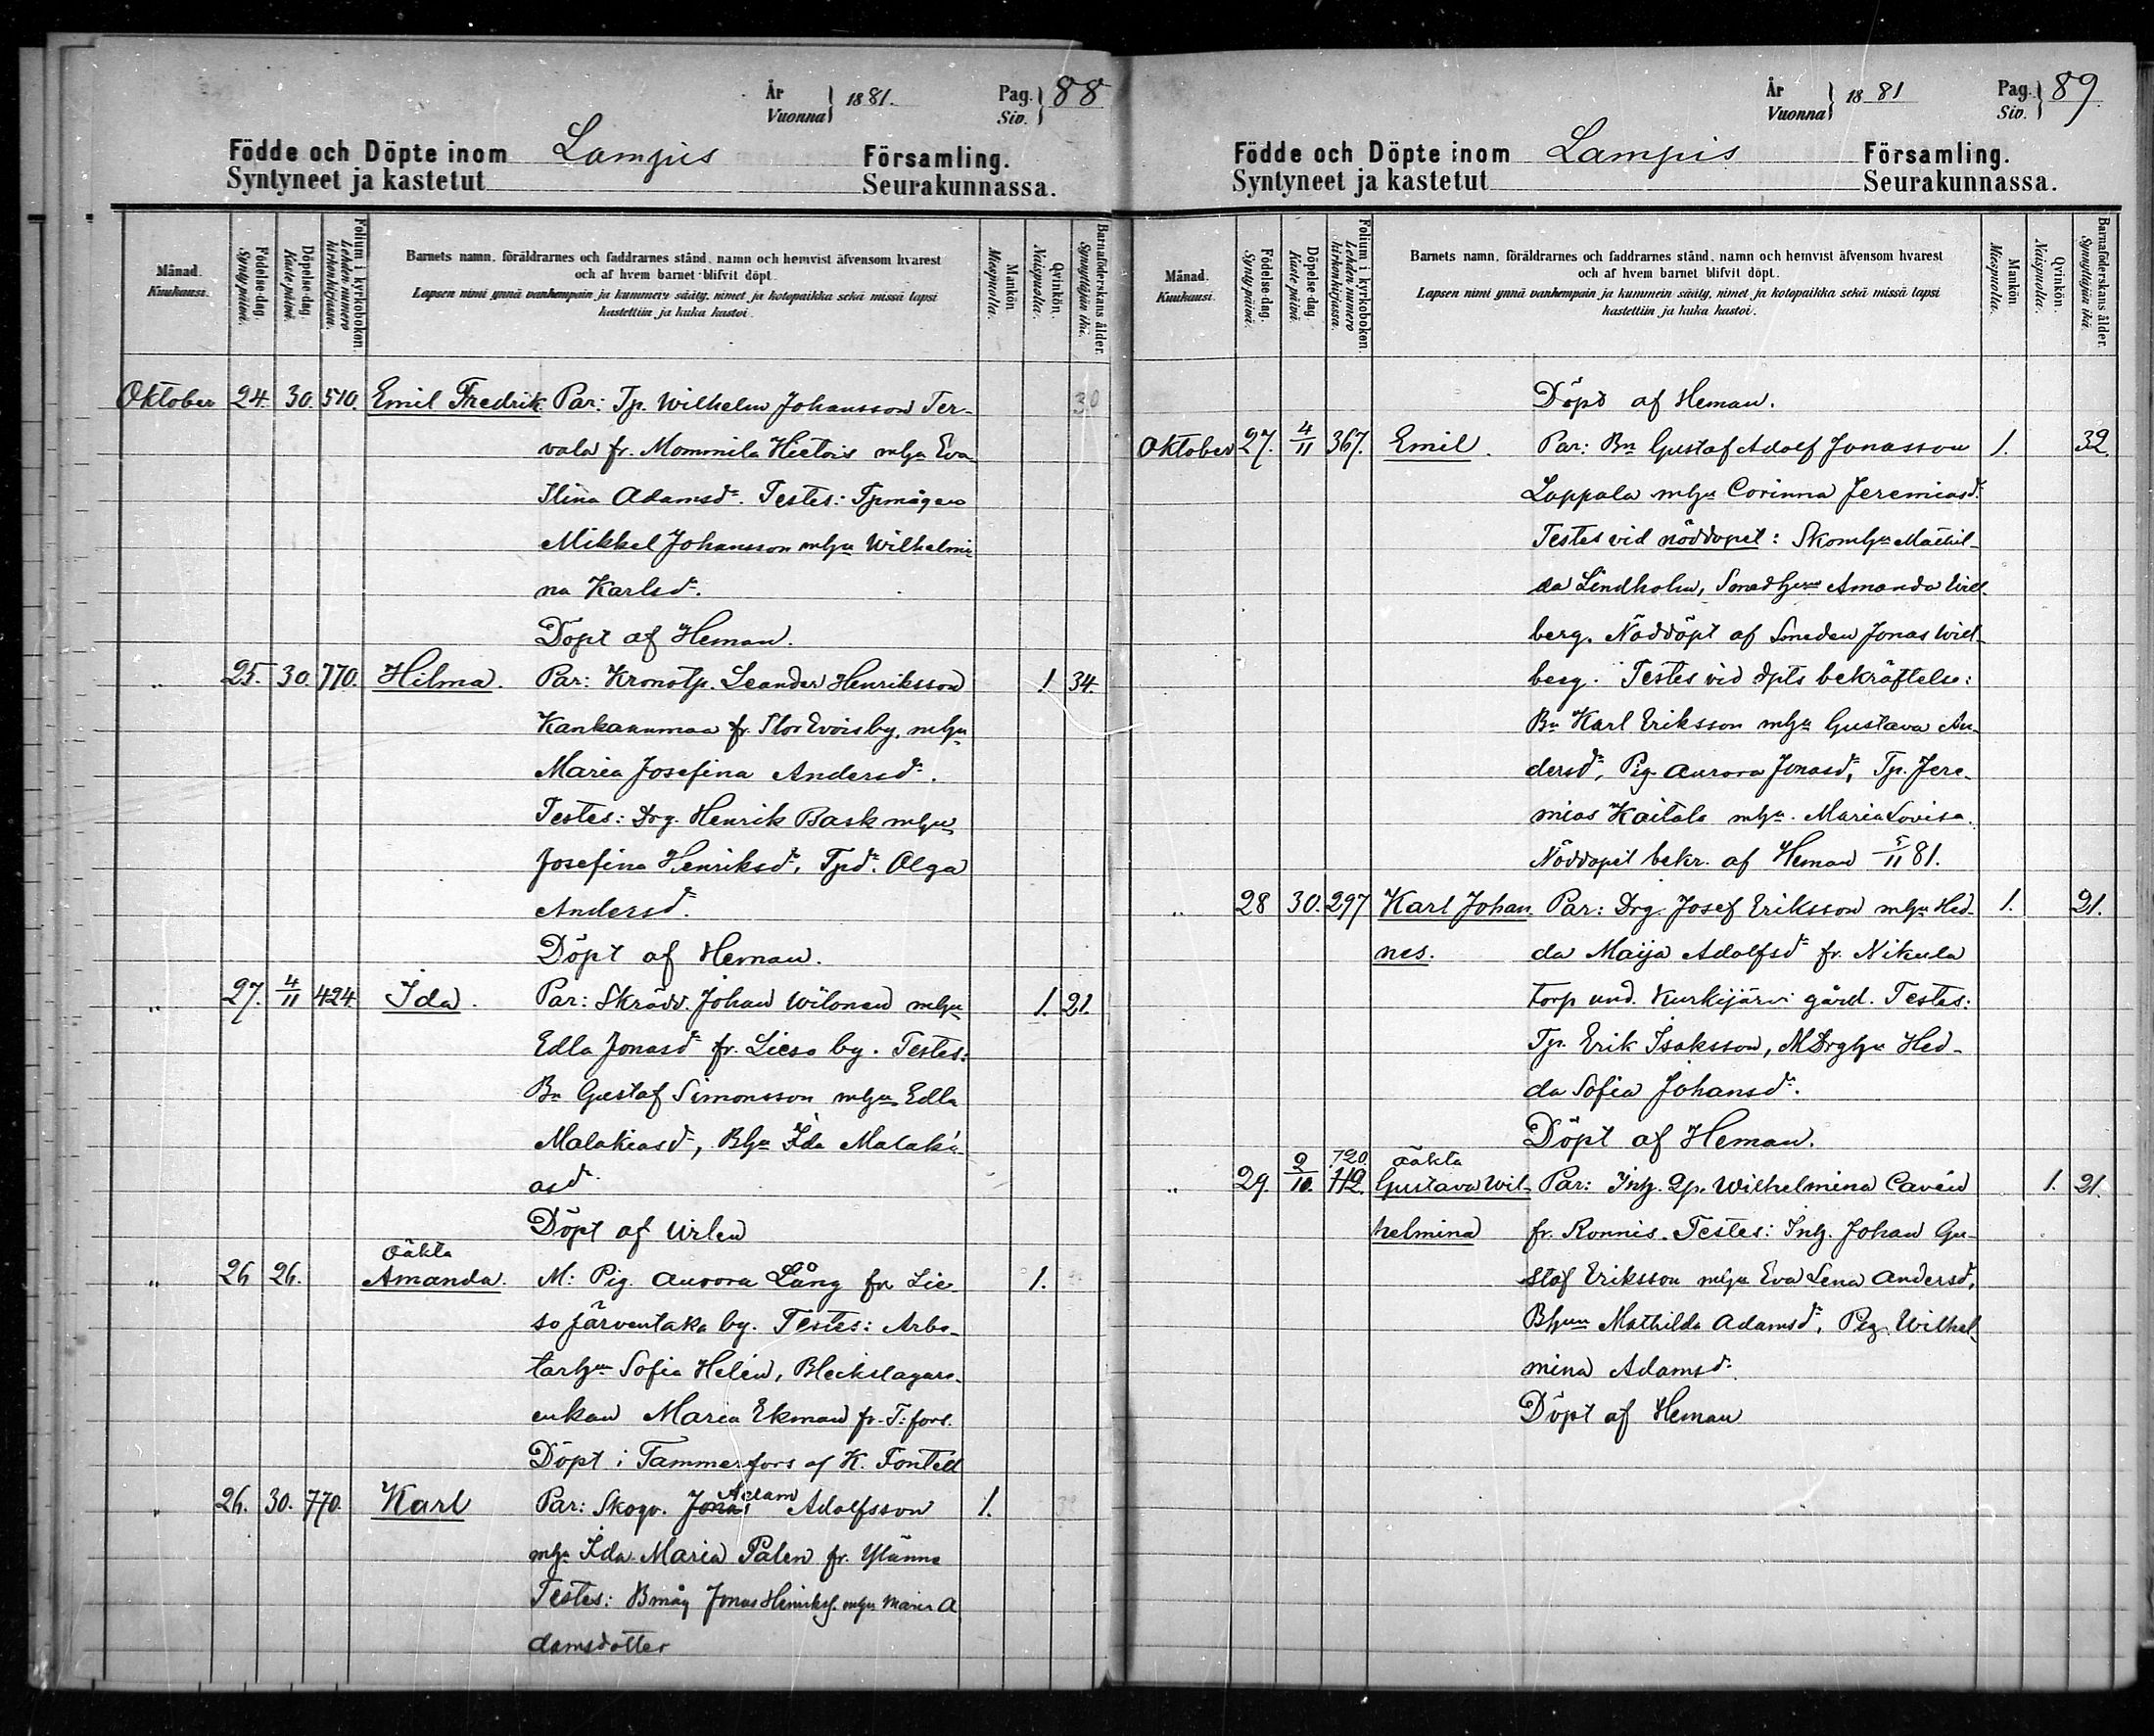 År
Vuonna } 1881.
Pag.
Siv. } 88
Födde och Döpte inom Lampis Församling.
Syntyneet ja kastetut Seurakunnassa.
Månad. Kuukausi.
Födelse-dag. Synty-päivä.
Döpelse-dag. Kaste-päivä.
Folium i kyrkoboken. Lehden numero kirkonkirjassa.
Barnets namn, föräldrarnes och faddrarnes stånd, namn och hemvist äfvensom hvarest
och af hvem barnet blifvit döpt.
Lapsen nimi ynnä vanhempain ja kummein sääty, nimet ja kotopaikka sekä missä lapsi
kastettiin ja kuka kastoi.
Mankön. Miespuolta.
Qvinkön. Naispuolta.
Barnaföderskans ålder. Synnyttäjän ikä.
Oktober 24. 30. 510. Emil Fredrik Par: Tp. Wilhelm Johansson Ter- 30
vala fr. Mommila Hietois mhu Eva
Ilina Adamsdr. Testes: Tpmågen
Mikkel Johansson mhu Wilhelmi-
na Karlsdr.
Döpt af Heman.
„ 25. 30. 770. Hilma. Par: Kronotp. Leander Henriksson 1. 34.
Kankaanmaa fr. Stor Evois by, mhu
Maria Josefina Andersdr.
Testes: Drg. Henrik Bask mhu
Josefina Henriksdr, Tpdr. Olga
Andersdr.
Döpt af Heman.
„ 27. 4/11 424. Ida. Par: Skrädd. Johan Wilonen mhu 1. 21.
Edla Jonasdr fr. Lieso by. Testes:
Bn Gustaf Simonsson mhu Edla
Malakiasdr, Bhu Ida Malaki-
asdr.
Döpt af Urlen
oäkta
„ 26 26. Amanda. M: Pig. Aurora Lång fr. Lie- 1.
so Järventaka by. Testes: Arbe-
tarhu Sofia Helén, Bleckslagare-
enkan Maria Ekman fr. T:fors.
Döpt i Tammerfors af K. Fontell
Adam
„ 26. 30. 770. Karl Par: Skogv. Jonas Adolfsson 1.
mhu Ida Maria Palen fr. Ylänne
Testes: Bmåg Jonas Henriks. mhu Maria A
damsdotter
År
Vuonna } 1881
Pag.
Siv. } 89.
Födde och Döpte inom Lampis Församling.
Syntyneet ja kastetut Seurakunnassa.
Månad. Kuukausi.
Födelse-dag. Synty-päivä.
Döpelse-dag. Kaste-päivä.
Folium i kyrkoboken. Lehden numero kirkonkirjassa.
Barnets namn, föräldrarnes och faddrarnes stånd, namn och hemvist äfvensom hvarest
och af hvem barnet blifvit döpt.
Lapsen nimi ynnä vanhempain ja kummein sääty, nimet ja kotopaikka sekä missä lapsi
kastettiin ja kuka kastoi.
Mankön. Miespuolta.
Qvinkön. Naispuolta.
Barnaföderskans ålder. Synnyttäjän ikä.
Döpt af Heman.
Oktober 27. 4/11 367. Emil. Par: Bn Gustaf Adolf Jonasson 1. 32.
Lappala mhu Corinna Jeremiasdr.
Testes vid nöddopet: Skomhu Mathil-
da Lindholm, Smedhun Amanda Wil-
berg. Nöddöpt af Smeden Jonas Wil-
berg. Testes vid dpts bekräftelse:
Bn Karl Eriksson mhu Gustava An-
dersdr, Pig. Aurora Jonasdr, Tp. Jere-
mias Kaitala mhu Maria Lovisa.
Nöddopet bekr. af Heman 5/11 81.
„ 28 30. 297 Karl Johan- Par: Drg. Josef Eriksson mhu Hed- 1. 21.
nes. da Maija Adolfsdr fr. Nikula
torp und. Kurkijärvi gård. Testes:
Tp. Erik Isaksson, MDrghu Hed-
da Sofia Johansdr.
Döpt af Heman.
720. oäkta
„ 29. 2/10. 112. Gustava Wil- Par: Inh. Qp. Wilhelmina Cavén 1. 21.
helmina fr. Ronnis. Testes: Inh. Johan Gu-
staf Eriksson mhu Eva Lena Andersdr,
Bhun Mathilda Adamsdr, Pig. Wilhel-
mina Adamsdr.
Döpt af Heman